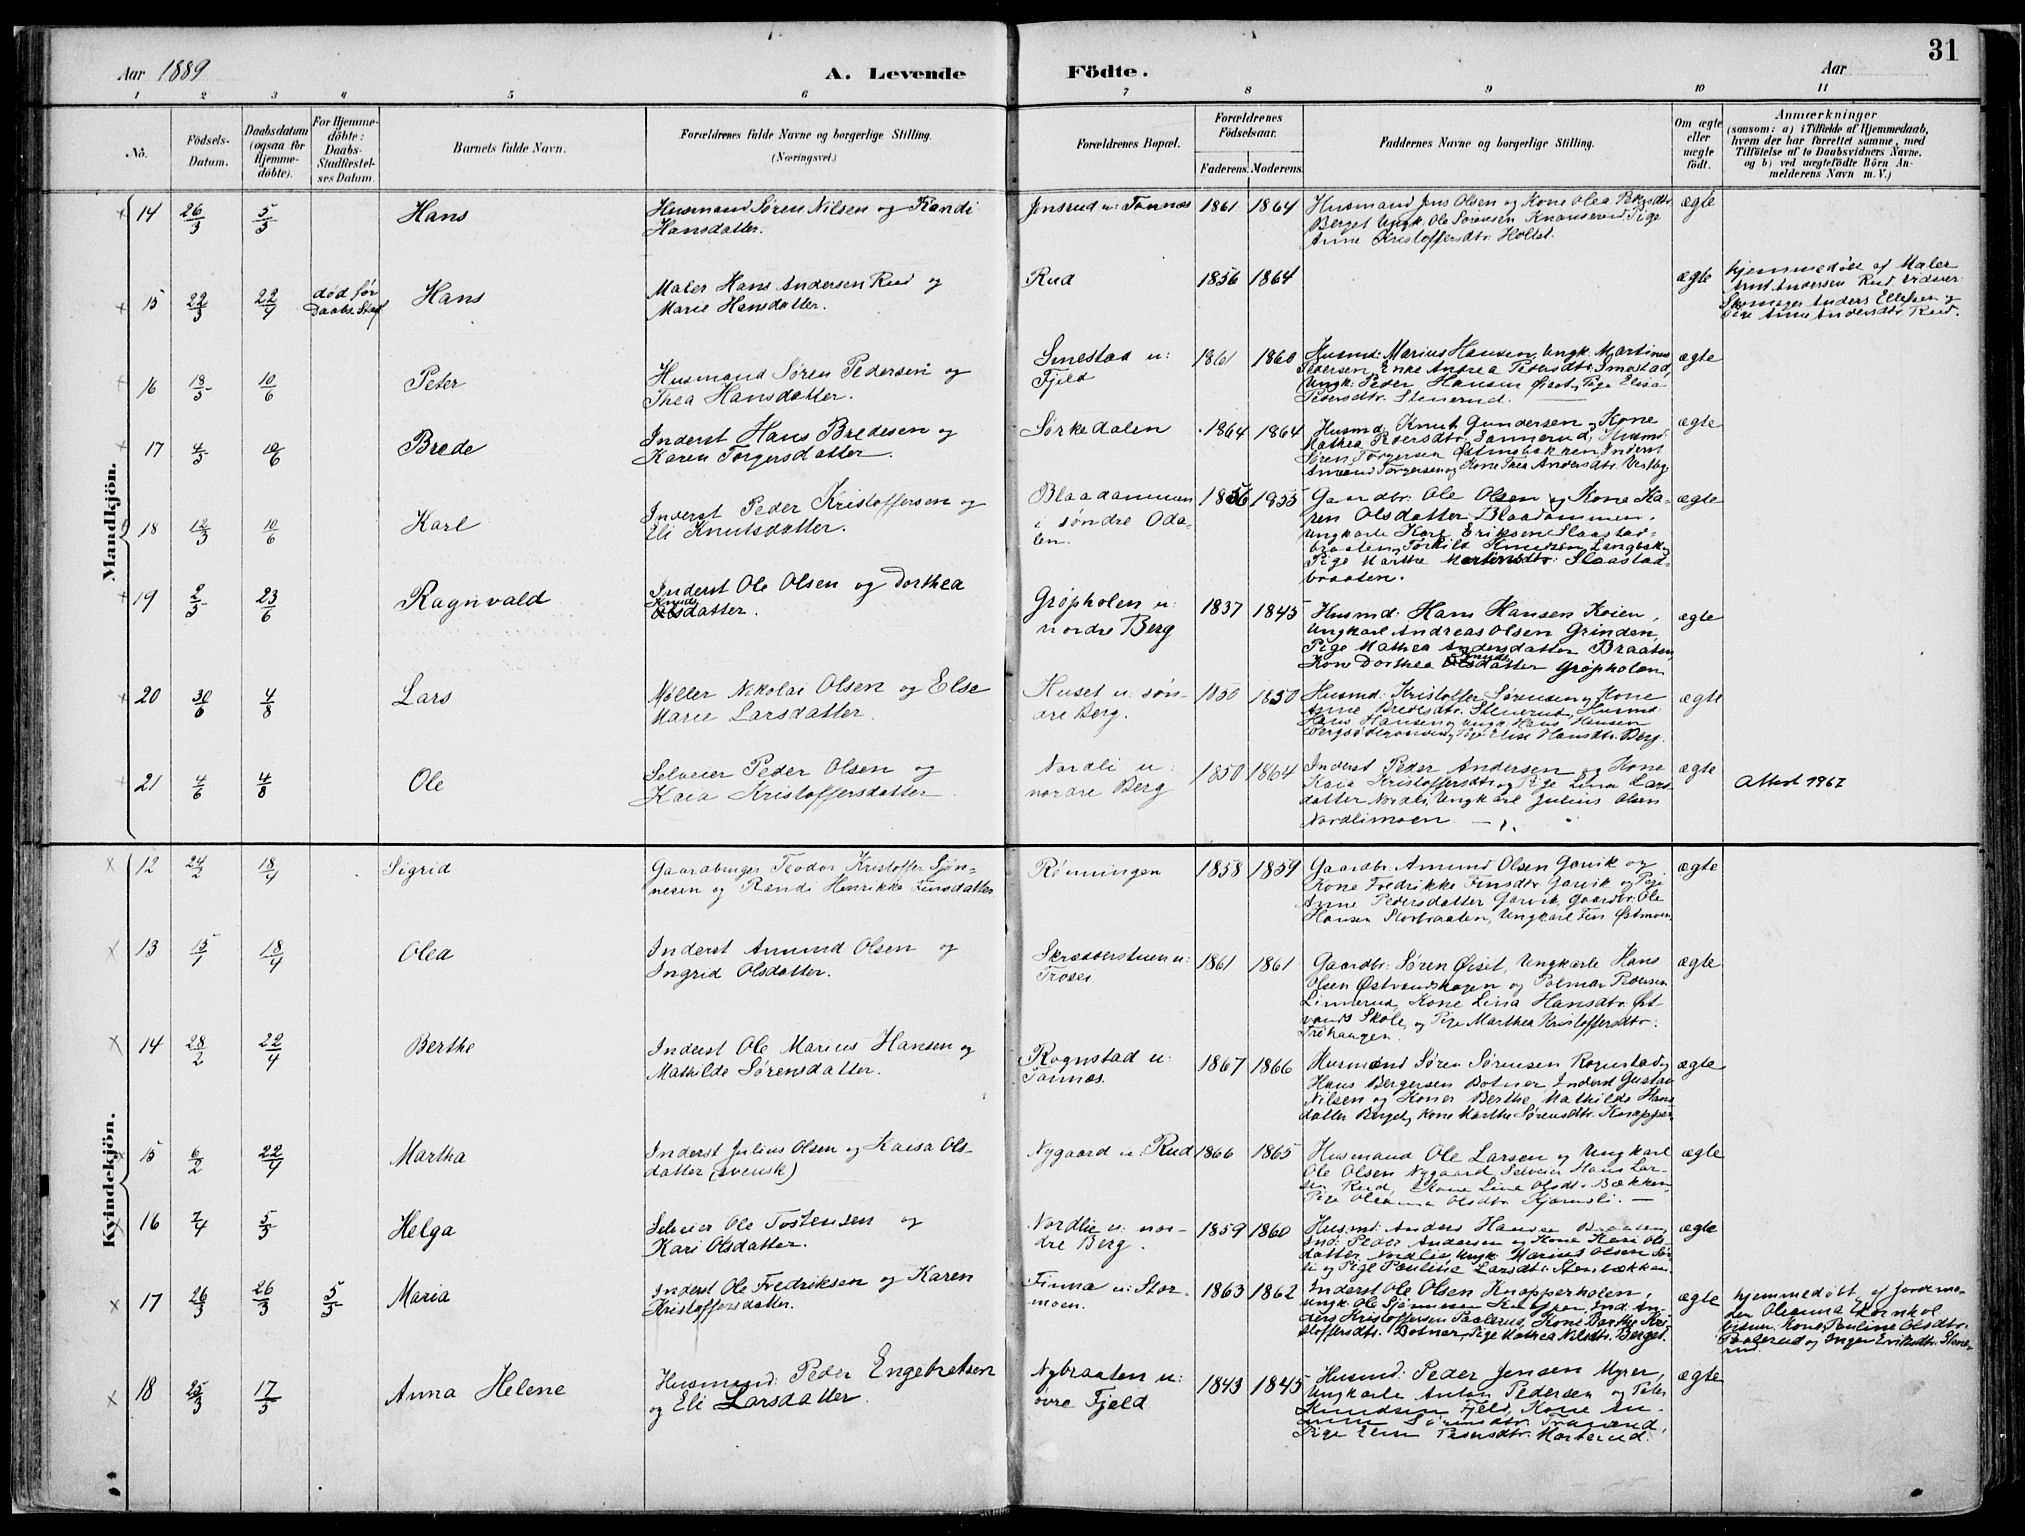 31
Aar 1889
A. Levende
Födte.
Aar
1 2 3 4 5 6 7 8 9 10 11
No.
Födsels-
Datum.
Daabsdatum
(ogsaa for
Hjemme-
döbte).
For Hjemme-
döbte:
Daabs-
Stadfæstel-
ses Datum.
Barnets fulde Navn.
Forældrenes fulde Navne og borgerlige Stilling.
(Næringsvei.)
Forældrenes Bopæl.
Forældrenes
Födselsaar.
Faderens. Moderens.
Faddernes Navne og borgerlige Stilling.
Om ægte
eller
uægte
født.
Anmærkninger
(saasom: a) i Tilfælde af Hjemmedaab,
hvem der har forrettet samme, med
Tilføielse af to Daabsvidners Navne.
og b) ved uægtefödte Börn An-
melderens Navn m. V.)
Mandkjön.
14 26/3 5/5 Hans
Husmand Søren Nilsen og Randi
Hansdatter.
Jonsrud u: Tannæs 1861 1864
Husmand Jens Olsen og Kone Olea Pedersdtr.
Berget Ungk. Ole Sørensen Knapperud, Pige
Anne Kristoffersdtr. Holtet.
ægte
15 22/3 22/4 død før
Daabs. Stad. Hans
Maler Hans Andersen Rud og
Marie Hansdatter.
Rud 1856 1864 ægte
hjemmedøbt af Maler
Andersen Rud. Vidner:
Skomager Anders Ellefsen og
Pige Anne Andersdtr. Rud.
16 18/5 10/6 Peter
Husmand Søren Pedersen og
Thea Hansdatter.
Smestad u:
Fjeld
1861 1860
Husmd: Marius Hansen, Ungk. Martinus
Pedersen, Enke Andrea Pedersdtr. Smestad,
Ungk: Peder Hansen Øiset, Pige Elisa
Pedersdtr. Stenerud.
ægte
17 4/5 10/6 Brede
Inderst Hans Bredesen og
Karen Torgersdatter.
Sørkedalen 1864 1864
Husmd. Knut Gundersen og Kone
Mathea Pedersdtr. Sannerud, Husmd.
Søren Torgersen Østmobakken, Inderst
Amund Torgersen og Kone Thea Andersdtr. Vestby
ægte
18 12/3 10/6 Karl
Inderst Peder Kristoffersen og
Eli Knutsdatter.
Blaadammen
i søndre Oda-
len.
1856 1855
Gaardbr: Ole Olsen og Kone Ka-
ren Olsdatter Blaadammen,
Ungkarle Karl Eriksen Slaastad-
braaten, Torkild Knudsen Langbak,
Pige Marthe Martinsdtr: Slaastad-
braaten.
ægte
19 2/5 23/6 Ragnvald
Inderst Ole Olsen og Dorthea
Knuds
Olsdatter.
Grøpholen u:
nordre Berg
1837 1845
Husmd: Hans Hansen Koien,
Ungkarl Andreas Olsen Grinden,
Pige Mathea Andersdatter Braaten,
Knuds
Kone Dorthea Olsdatter Grøpholen
ægte
20 30/6 4/8 Lars
Møller Nikolai Olsen og Else
Marie Larsdatter.
Huset u: søn-
dre Berg.
1850 1850
Husmd: Kristoffer Sørensen og Kone
Anne Bredesdtr. Stenerud, Husmd.
Hans Hansen og Ungk. Hans Hansen
og Pige Elise Hansdtr. Berg.
ægte
21 4/6 4/8 Ole
Selveier Peder Olsen og
Kaia Kristoffersdatter
Nordli u:
nordre Berg
1850 1864
Inderst Peder Andersen og Kone
Kaia Kristoffersdtr. og Pige Lina Lars-
datter Nordli, Ungkarl Julius Olsen
Nordlimoen
ægte
Attest 1967
Kvindekjön.
12 24/2 18/4 Sigrid
Gaardbruger Teodor Kristoffer Sjøn-
nesen og Randi Henrikke Finsdatter
Rønningen 1858 1859
Gaardbr. Amund Olsen Garvik og
Kone Fredrikke Finsdtr. Garvik og Pige
Anne Pedersdatter Garvik, Gaardbr. Ole
Hansen Storbraaten, Ungkarl Fin Østmoen
ægte
13 15/1 18/4 Olea
Inderst Amund Olsen og
Ingrid Olsdatter.
Skrædderstuen u:
Troset
1861 1861
Gaardbr: Søren Øiset, Ungkarle Hans
Olsen Østvandshagen og Palmar Pedersen
Linnerud, Kone Lina Hansdtr. Øst-
vands Skole, og Pige Marthea Kristoffersdtr.
Trøhaugen.
ægte
14 28/2 22/4 Berthe
Inderst Ole Marius Hansen og
Mathilde Sørensdatter.
Rognstad u:
Tannæs.
1867 1866
Husmand Søren Sørensen Rognstad,
Hans Bergersen Botner, Inderst Gustav
Nilsen og Koner Berthe Mathilde Hans-
datter Berget, Kone Marthe Sørensdtr. Knapper
ægte
15 6/2 22/4 Martha
Inderst Julius Olsen og Kaisa Ols-
datter (svensk)
Nygaard u: Rud 1866 1865
Husmand Ole Larsen og Ungkarl
Ole Olsen Nygaard, Selveier Hans Lar-
sen Rud, Kone Line Olsdtr. Bækken,
Pige Oleanna Olsdtr. Kjærnsli.
ægte
16 7/4 5/5 Helga
Selveier Ole Tostensen og
Kari Olsdatter.
Nordlie u: nor-
dre Berg.
1859 1860
Husmd: Anders Hansen Braaten,
Ind: Peder Andersen og Kone Kari Ols-
datter Nordlie, Ungk. Marius Olsen Sør-
li og Pige Pauline Larsdtr. Stenbækken.
ægte
17 26/3 26/3 5/5 Maria
Inderst Ole Fredriksen og Karen
Kristoffersdatter.
Finna u: Stor-
moen.
1863 1862
Inderst Ole Olsen Knapperholen,
Ungk. Ole Sjønnesen Knapper, Ind. An-
ders Kristoffersen Paalerud, Kone Berthe Kri-
stoffersdtr. Botner, Pige Mathea Nilsdtr. Berget.
ægte
hjemmedøbt af Jordemo-
der Oleanna Kornhol
Vidner: Kone Pauline Olsdtr.
Paalerud og Inger Eriksdtr. Stene-
rud.
18 25/3 17/5 Anna Helene
Husmand: Peder Engebretsen
og Eli Larsdatter.
Nybraaten u:
øvre Fjeld
1843 1845
Husmd: Peder Jensen Myrer,
Ungkarle Anton Pedersen og Peter
Knudsen Fjeld, Kone An-
Sørensdtr.
Pige Elen Pedersdtr. Marterud.
ægte